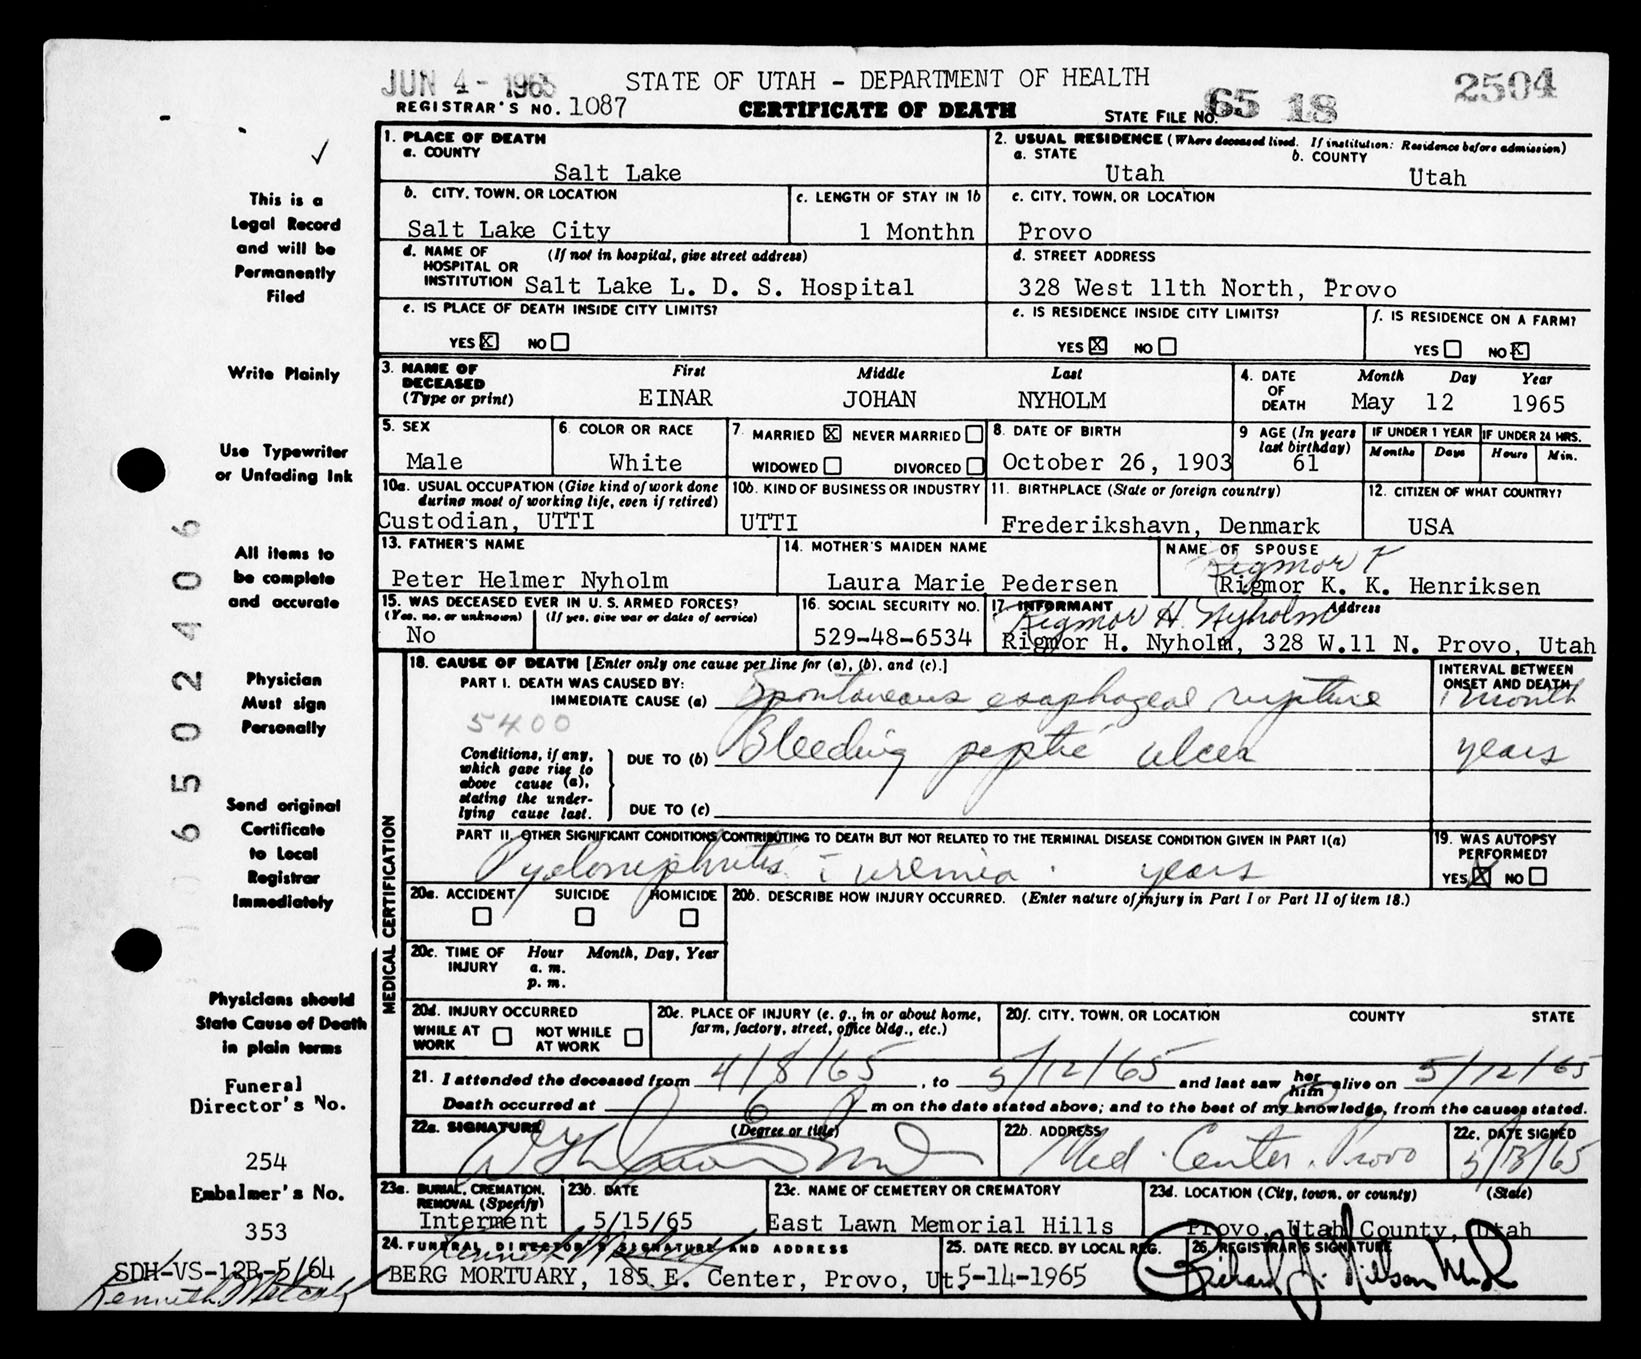 JUN 4 - 1965
STATE OF UTAH - DEPARTMENT OF HEALTH
2504
REGISTRAR'S NO. 1087
CERTIFICATE OF DEATH
STATE FILE NO. 65 18
This is a
Legal Record
and will be
Permanently
Filed
Write Plainly
Use Typewriter
or Unfading Ink
All items to
be complete
and accurate
Physician
Must sign
Personally
Send original
Certificate
to Local
Registrar
Immediately
Physicians should
State Cause of Death
in plain terms
Funeral
Director's No.
254
Embalmer's No.
353
SDH-VS-12B-5/64
Kenneth Metcalf
65 02406
1. PLACE OF DEATH
a. COUNTY
Salt Lake
2. USUAL RESIDENCE (Where deceased lived. If institution: Residence before admission)
a. STATE
Utah
b. COUNTY
Utah
b. CITY, TOWN, OR LOCATION
Salt Lake City
c. LENGTH OF STAY IN 1b
1 Monthn
c. CITY, TOWN, OR LOCATION
Provo
d. NAME OF (If not in hospital, give street address)
HOSPITAL OR
INSTITUTION Salt Lake L. D. S. Hospital
d. STREET ADDRESS
328 West 11th North, Provo
e. IS PLACE OF DEATH INSIDE CITY LIMITS?
YES X NO
e. IS RESIDENCE INSIDE CITY LIMITS?
YES X NO
f. IS RESIDENCE ON A FARM?
YES NO X
3. NAME OF
DECEASED
(Type or print)
First Middle Last
EINAR JOHAN NYHOLM
4. DATE
OF
DEATH
Month Day Year
May 12 1965
5. SEX
Male
6. COLOR OR RACE
White
7. MARRIED X NEVER MARRIED
WIDOWED DIVORCED
8. DATE OF BIRTH
October 26, 1903
9 AGE (In years
last birthday)
61
IF UNDER 1 YEAR
Months Days
IF UNDER 24 HRS.
Hours Min.
10a. USUAL OCCUPATION (Give kind of work done
during most of working life, even if retired)
Custodian, UTTI
10b. KIND OF BUSINESS OR INDUSTRY
UTTI
11. BIRTHPLACE (State or foreign country)
Frederikshavn, Denmark
12. CITIZEN OF WHAT COUNTRY?
USA
13. FATHER'S NAME
Peter Helmer Nyholm
14. MOTHER'S MAIDEN NAME
Laura Marie Pedersen
NAME OF SPOUSE
Rigmor K
Rigmor K. K. Henriksen
15. WAS DECEASED EVER IN U. S. ARMED FORCES?
(Yes, no, or unknown) (If yes, give war or dates of service)
No
16. SOCIAL SECURITY NO.
529-48-6534
17. INFORMANT Address
Rigmor H. Nyholm
Rigmor H. Nyholm, 328 W.11 N. Provo, Utah
MEDICAL CERTIFICATION
18. CAUSE OF DEATH [Enter only one cause per line for (a), (b), and (c).]
INTERVAL BETWEEN
ONSET AND DEATH
PART I. DEATH WAS CAUSED BY:
IMMEDIATE CAUSE (a) Spontaneous esophageal rupture 1 month
5400
Conditions, if any,
which gave rise to
above cause (a),
stating the under-
lying cause last.
DUE TO (b) Bleeding peptic ulcer years
DUE TO (c)
PART II. OTHER SIGNIFICANT CONDITIONS CONTRIBUTING TO DEATH BUT NOT RELATED TO THE TERMINAL DISEASE CONDITION GIVEN IN PART I(a)
Pyelonephritis c uremia. years
19. WAS AUTOPSY
PERFORMED?
YES X NO
20a. ACCIDENT SUICIDE HOMICIDE
20b. DESCRIBE HOW INJURY OCCURRED. (Enter nature of injury in Part I or Part II of item 18.)
20c. TIME OF
INJURY
Hour Month, Day, Year
a. m.
p. m.
20d. INJURY OCCURRED
WHILE AT
WORK
NOT WHILE
AT WORK
20e. PLACE OF INJURY (e. g., in or about home,
farm, factory, street, office bldg., etc.)
20f. CITY, TOWN, OR LOCATION COUNTY STATE
21. I attended the deceased from 4/8/65, to 5/12/65 and last saw her him alive on 5/12/65
Death occurred at 6 P m on the date stated above; and to the best of my knowledge, from the causes stated.
22a. SIGNATURE (Degree or title)
22b. ADDRESS
Med. Center. Provo
22c. DATE SIGNED
5/13/65
23a. BURIAL, CREMATION,
REMOVAL (Specify)
Interment
23b. DATE
5/15/65
23c. NAME OF CEMETERY OR CREMATORY
East Lawn Memorial Hills
23d. LOCATION (City, town, or county) (State)
Provo, Utah County, Utah
24. FUNERAL DIRECTOR'S SIGNATURE AND ADDRESS
Kenneth Metcalf
BERG MORTUARY, 185 E. Center, Provo, Ut
25. DATE RECD. BY LOCAL REG.
5-14-1965
26. REGISTRAR'S SIGNATURE
Richard J. Nilson MD